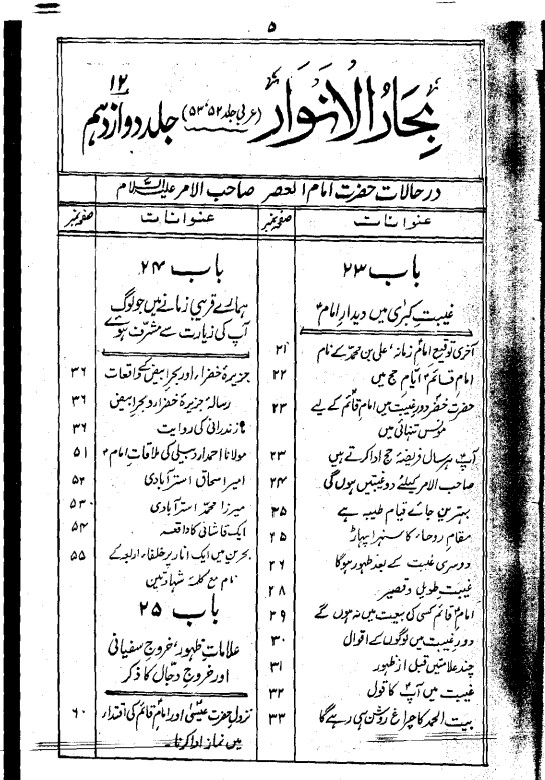 ۵
بحار الانوار (عربی جلد ۵۲، ۵۳) جلد دوازدہم ۱۲
درحالات حضرت امام العصر صاحب الامر علیہ السلام
عنوانات صفحہ نمبر
باب ۲۳
غیبت کبریٰ میں دیدار امامؑ
آخری توقیع امام زمانہؑ علی بن محمد کے نام ۲۱
امام قائمؑ ایام حج میں ۲۲
حضرت خضر دور غیبت میں امام قائم کے لیے ۲۳
مونس تنہائی میں
آپؑ ہر سال فریضۂ حج ادا کرتے ہیں ۲۳
صاحب الامر کیلئے دو غیبتیں ہوں گی ۲۴
بہترین جائے قیام طیبہ ہے ۲۵
مقام روحاء کا سنہرا پہاڑ ۲۵
دوسری غیبت کے بعد ظہور ہوگا ۲۶
غیبت طویل و قصیر ۲۸
امام قائم کسی کی بیعت میں نہ ہوں گے ۲۹
دور غیبت میں لوگوں کے اقوال ۳۰
چند علامتیں قبل از ظہور ۳۱
غیبت میں آپؑ کا قول ۳۲
بیت الحمد کا چراغ روشن ہی رہے گا ۳۳
عنوانات صفحہ نمبر
باب ۲۴
ہمارے قریبی زمانے میں جو لوگ
آپ کی زیارت سے مشرف ہوئے
جزیرہ خضراء اور بحر ابیض کے واقعات ۳۶
رسالہ جزیرہ خضراء و بحر ابیض ۳۶
زندرانی کی روایت ۳۶
مولانا احمد اردبیلی کی ملاقات امامؑ ۵۱
امیر اسحاق استرآبادی ۵۲
میرزا محمد استرآبادی ۵۳
ایک قاشانی کا واقعہ ۵۴
بحرین میں ایک انار پر خلفاء اربعہ کے ۵۵
نام مع کلمۂ شہادتین
باب ۲۵
علامات ظہور، خروج سفیانی
اور خروج دجال کا ذکر
نزول حضرت عیسیٰؑ اور امام قائم کی اقتدار ۶۰
میں نماز ادا کرنا۔